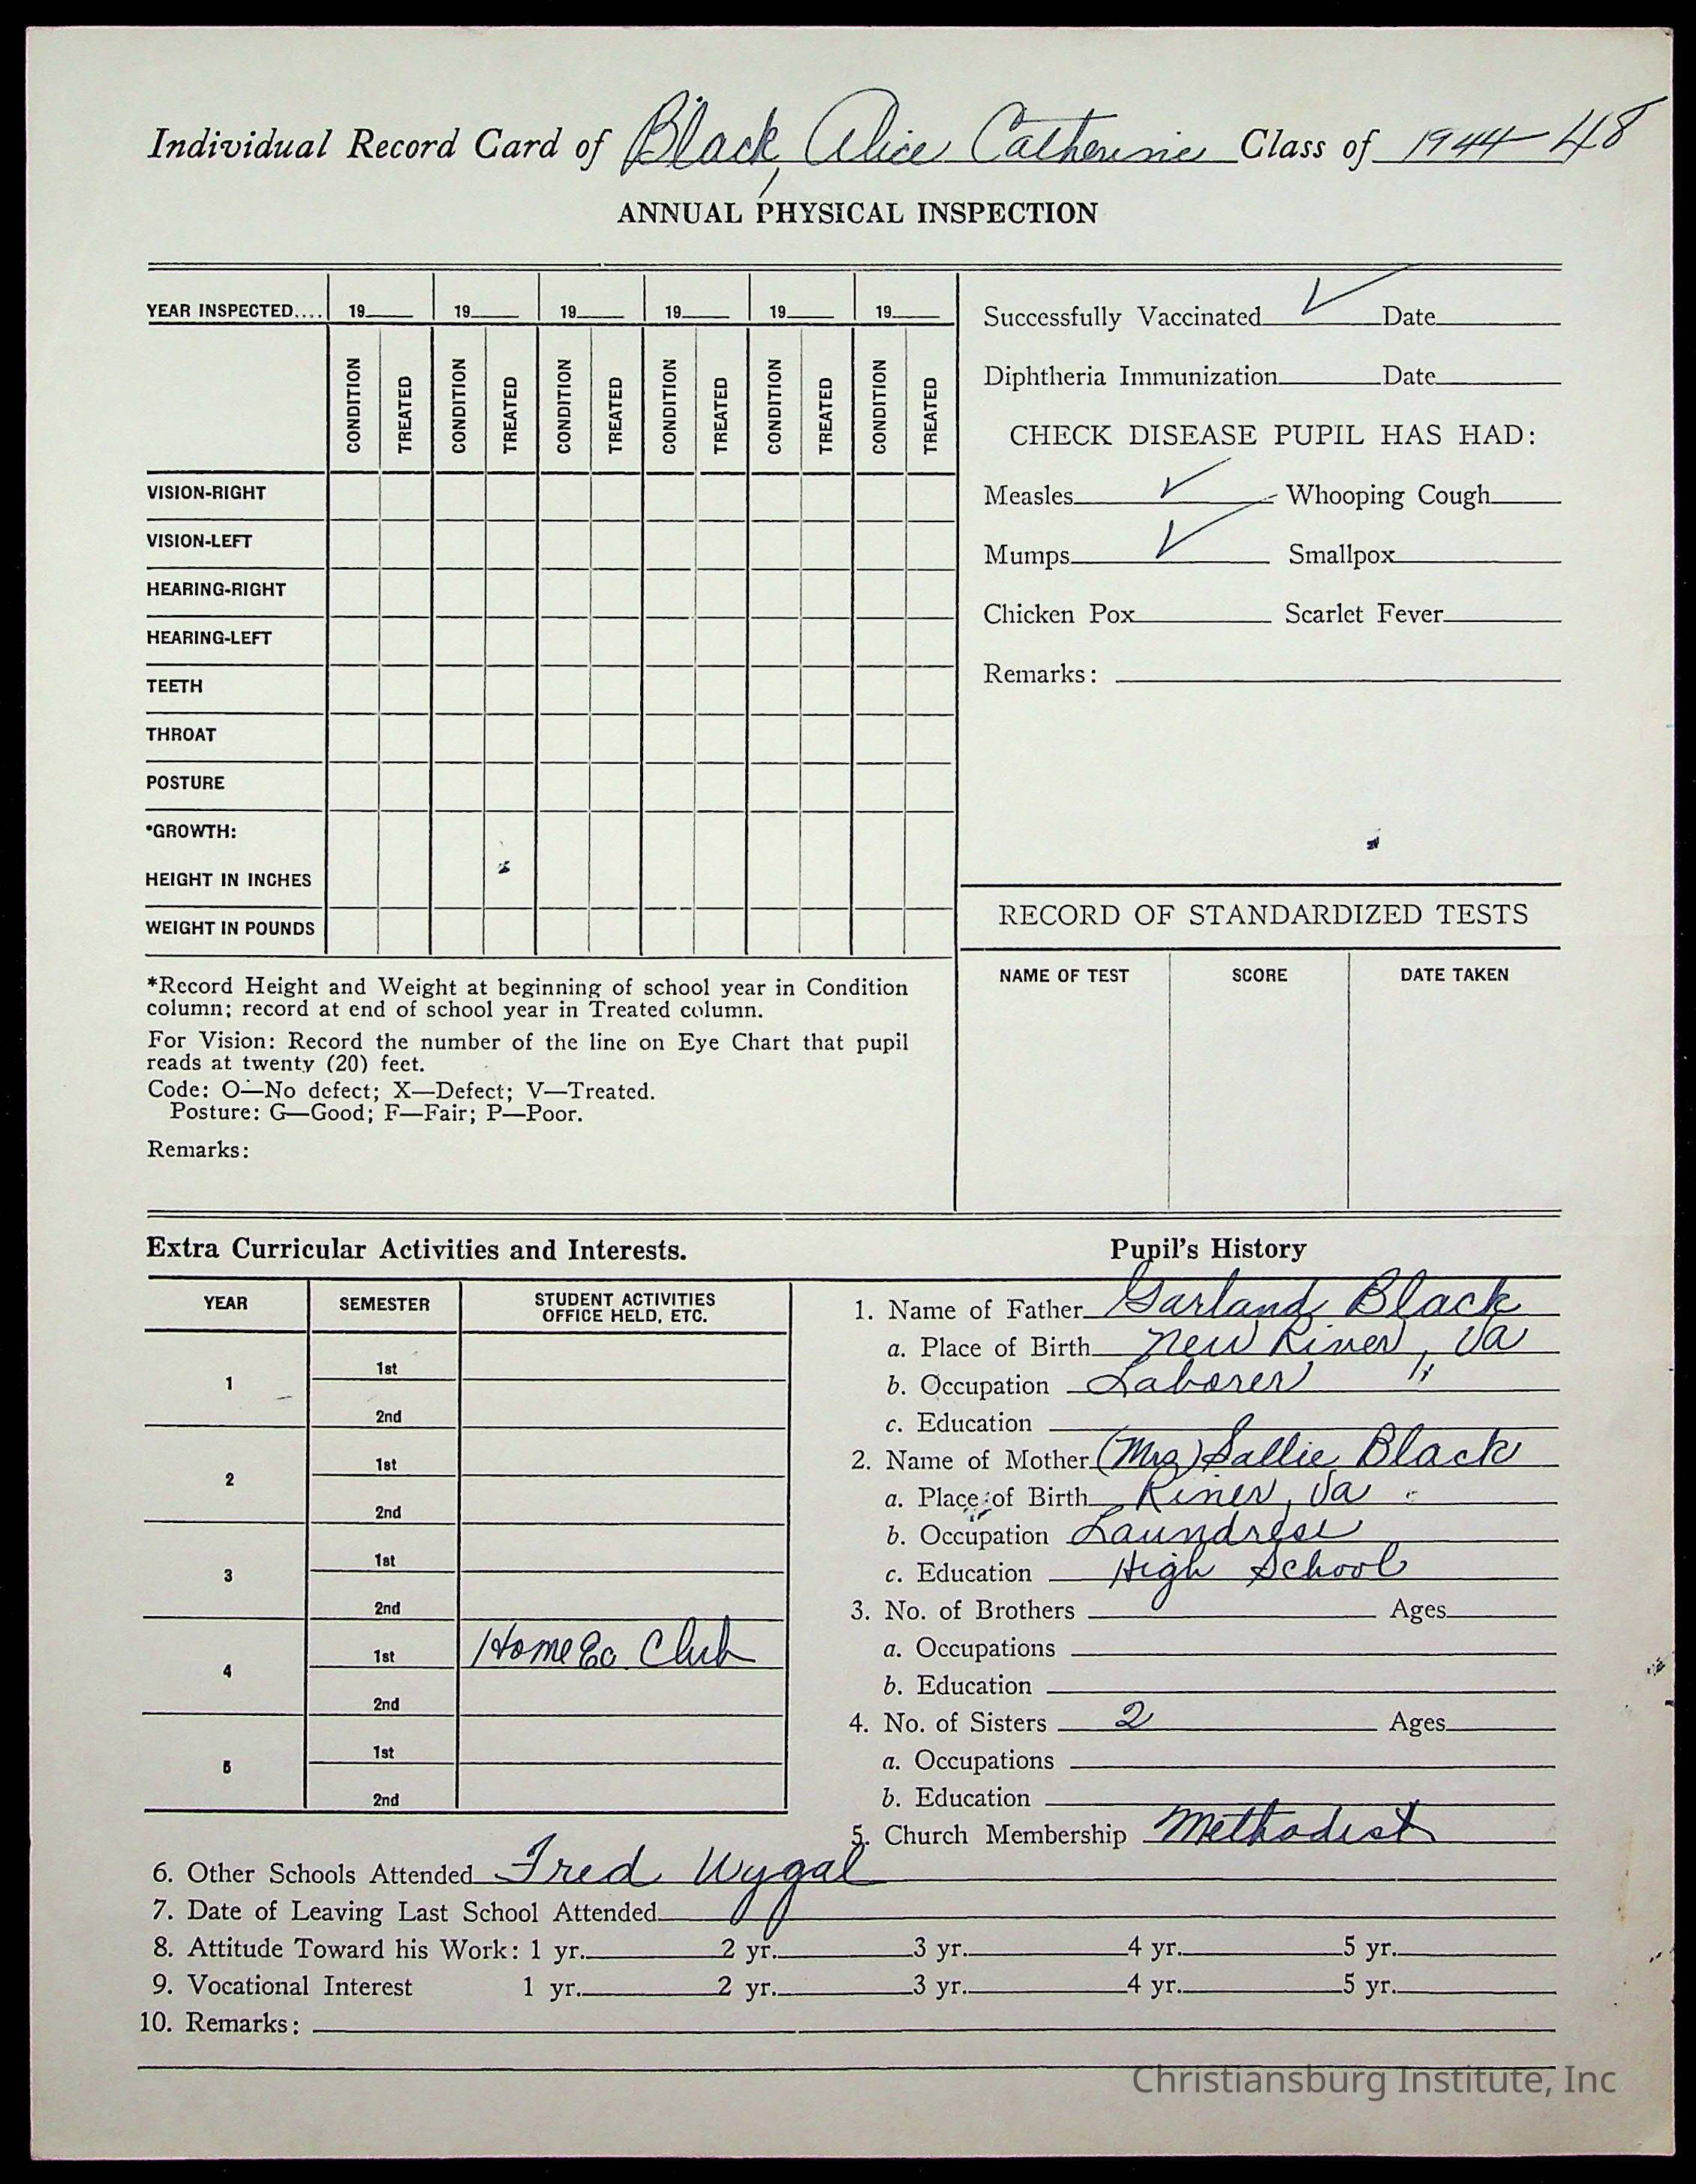 Individual Record Card of Black, Alice Catherine Class of 1944-48
ANNUAL PHYSICAL INSPECTION
YEAR INSPECTED.... 19 19 19 19 19 19
CONDITION TREATED CONDITION TREATED CONDITION TREATED CONDITION TREATED CONDITION TREATED CONDITION TREATED
VISION-RIGHT
VISION-LEFT
HEARING-RIGHT
HEARING-LEFT
TEETH
THROAT
POSTURE
*GROWTH:
HEIGHT IN INCHES
WEIGHT IN POUNDS
*Record Height and Weight at beginning of school year in Condition
column; record at end of school year in Treated column.
For Vision: Record the number of the line on Eye Chart that pupil
reads at twenty (20) feet.
Code: O—No defect; X—Defect; V—Treated.
Posture: G—Good; F—Fair; P—Poor.
Remarks:
Successfully Vaccinated ✓ Date
Diphtheria Immunization Date
CHECK DISEASE PUPIL HAS HAD:
Measles ✓ Whooping Cough
Mumps ✓ Smallpox
Chicken Pox Scarlet Fever
Remarks:
RECORD OF STANDARDIZED TESTS
NAME OF TEST SCORE DATE TAKEN
Extra Curricular Activities and Interests.
YEAR SEMESTER STUDENT ACTIVITIES
OFFICE HELD, ETC.
1 1st
2nd
2 1st
2nd
3 1st
2nd
4 1st Home Ec. Club
2nd
5 1st
2nd
Pupil's History
1. Name of Father Garland Black
a. Place of Birth New River, Va
b. Occupation Laborer
c. Education
2. Name of Mother (Mrs) Sallie Black
a. Place of Birth Riner, Va
b. Occupation Laundress
c. Education High School
3. No. of Brothers Ages
a. Occupations
b. Education
4. No. of Sisters 2 Ages
a. Occupations
b. Education
5. Church Membership Methodist
6. Other Schools Attended Fred Wygal
7. Date of Leaving Last School Attended
8. Attitude Toward his Work: 1 yr. 2 yr. 3 yr. 4 yr. 5 yr.
9. Vocational Interest 1 yr. 2 yr. 3 yr. 4 yr. 5 yr.
10. Remarks:
Christiansburg Institute, Inc